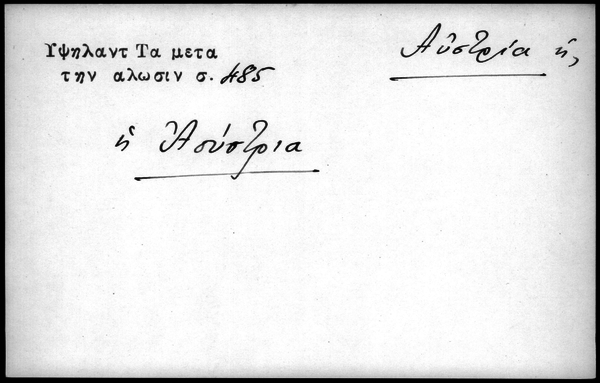 Υψηλαντ Τα μετα
την αλωσιν σ. 485
Αὐστρία ἡ,
ἡ Ἀσύστρια